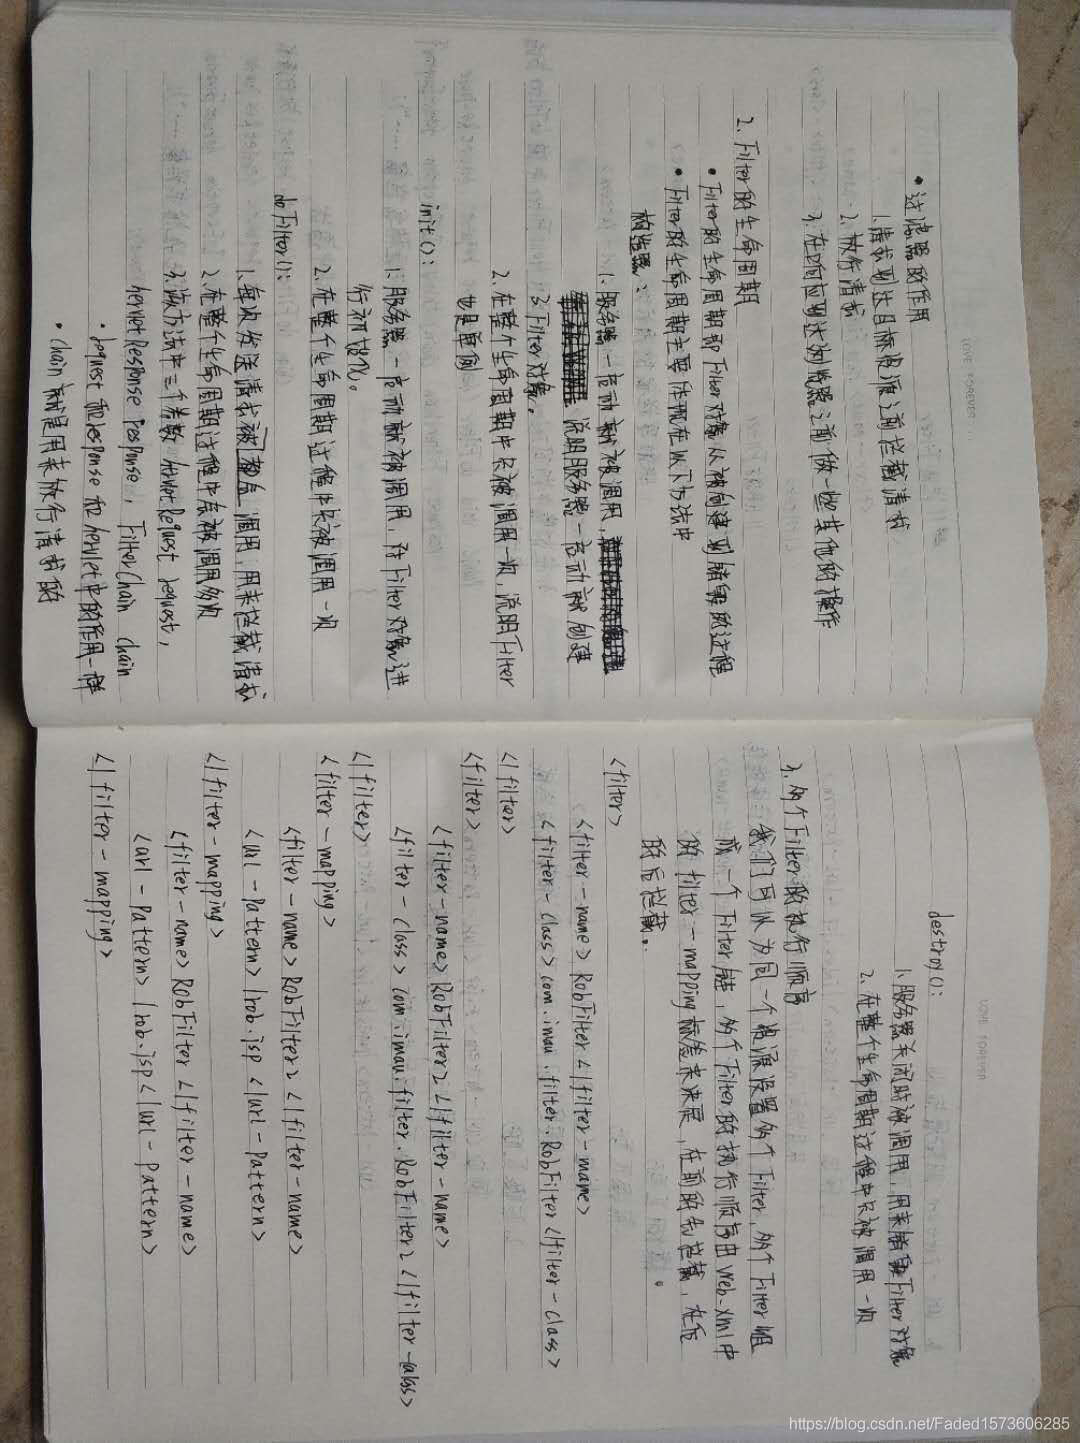 LOVE FOREVER
• 过滤器的作用
1. 请求到达目标资源之前拦截请求
2. 放行请求
3. 在响应到达浏览器之前做一些其他的操作
2. Filter的生命周期
• Filter的生命周期即Filter对象从被创建到销毁的过程
• Filter的生命周期主要体现在以下方法中
构造器：
1. 服务器一启动就被调用，
说明服务器一启动就创建
3 Filter对象。
2. 在整个生命周期中只被调用一次 说明Filter
也是单例
init():
1. 服务器一启动就被调用，对Filter对象进
行初始化。
2. 在整个生命周期过程中只被调用一次
doFilter():
1. 每次发送请求被 调用，用来拦截请求
2. 在整个生命周期过程中会被调用多次
3. 该方法中三个参数 ServletRequest request,
ServletResponse response, FilterChain chain
• request和response和Servlet中的作用一样
• chain就是用来放行请求的
LOVE FOREVER
destroy():
1. 服务器关闭时被调用，用来销毁Filter对象
2. 在整个生命周期过程中只被调用一次
3. 多个Filter的执行顺序
我们可以为同一个资源设置多个Filter，多个Filter组
成一个Filter链，多个Filter的执行顺序由web.xml中
的filter-mapping标签来决定，在前的先拦截，在后
的后拦截。
<filter>
<filter-name>RobFilter</filter-name>
<filter-class>com.imau.filter.RobFilter</filter-class>
</filter>
<filter>
<filter-name>RobFilter2</filter-name>
<filter-class>com.imau.filter.RobFilter2</filter-class>
</filter>
<filter-mapping>
<filter-name>RobFilter2</filter-name>
<url-pattern>/rob.jsp</url-pattern>
</filter-mapping>
<filter-name>RobFilter</filter-name>
<url-pattern>/rob.jsp</url-pattern>
</filter-mapping>
https://blog.csdn.net/Faded1573606285